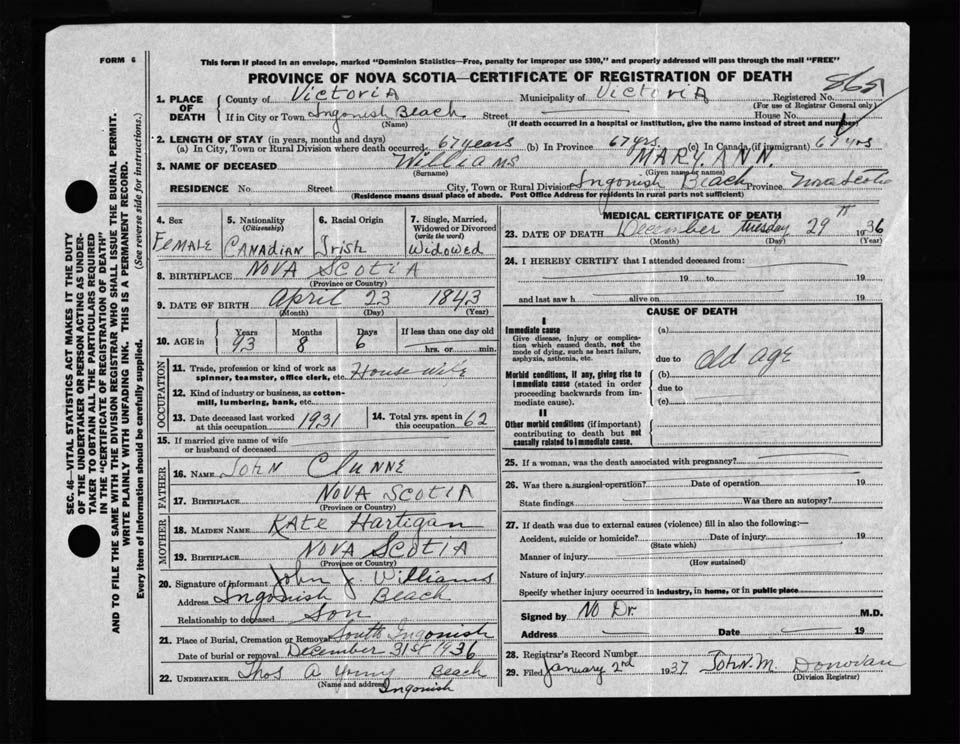 FORM 6
This form if placed in an envelope, marked "Dominion Statistics—Free, penalty for improper use $300," and properly addressed will pass through the mail "FREE"
PROVINCE OF NOVA SCOTIA—CERTIFICATE OF REGISTRATION OF DEATH
1. PLACE OF DEATH
County of Victoria Municipality of Victoria Registered No. 8651
(For use of Registrar General only)
If in City or Town Ingonish Beach Street House No.
(Name) (If death occurred in a hospital or institution, give the name instead of street and number)
2. LENGTH OF STAY (in years, months and days)
(a) In City, Town or Rural Division where death occurred 67 years (b) In Province 67 yrs. (c) In Canada (if immigrant) 67 yrs
3. NAME OF DECEASED Williams MARY. ANN.
(Surname) (Given name or names)
RESIDENCE No. Street City, Town or Rural Division Ingonish Beach Province Nova Scotia
(Residence means usual place of abode. Post Office Address for residents in rural parts not sufficient)
4. Sex
Female
5. Nationality
(Citizenship)
Canadian
6. Racial Origin
Irish
7. Single, Married, Widowed or Divorced
(write the word)
Widowed
8. BIRTHPLACE Nova Scotia
(Province or Country)
9. DATE OF BIRTH April 23 1843
(Month) (Day) (Year)
10. AGE in
Years Months Days If less than one day old
93 8 6 hrs. or min.
OCCUPATION
11. Trade, profession or kind of work as
spinner, teamster, office clerk, etc. House Wife
12. Kind of industry or business, as cotton-
mill, lumbering, bank, etc.
13. Date deceased last worked
at this occupation 1931
14. Total yrs. spent in
this occupation 62
15. If married give name of wife
or husband of deceased
FATHER
16. NAME John Clunne
17. BIRTHPLACE Nova Scotia
(Province or Country)
MOTHER
18. MAIDEN NAME Kate Hartigan
19. BIRTHPLACE Nova Scotia
(Province or Country)
20. Signature of informant John J. Williams
Address Ingonish Beach
Relationship to deceased Son
21. Place of Burial, Cremation or Removal South Ingonish
Date of burial or removal December 31st 1936
22. UNDERTAKER Thos A Young Beach
(Name and address) Ingonish
MEDICAL CERTIFICATE OF DEATH
23. DATE OF DEATH December Tuesday 29th 1936
(Month) (Day) (Year)
24. I HEREBY CERTIFY that I attended deceased from:
19 to 19
and last saw h alive on 19
CAUSE OF DEATH
I
Immediate cause
Give disease, injury or complica-
tion which caused death, not the
mode of dying, such as heart failure,
asphyxia, asthenia, etc.
Morbid conditions, if any, giving rise to
immediate cause (stated in order
proceeding backwards from im-
mediate cause).
II
Other morbid conditions (if important)
contributing to death but not
causally related to immediate cause.
(a)
due to Old Age
(b)
due to
(c)
25. If a woman, was the death associated with pregnancy?
26. Was there a surgical operation? Date of operation 19
State findings Was there an autopsy?
27. If death was due to external causes (violence) fill in also the following:—
Accident, suicide or homicide? Date of injury 19
(State which)
Manner of injury
(How sustained)
Nature of injury
Specify whether injury occurred in industry, in home, or in public place
Signed by No Dr M.D.
Address Date 19
28. Registrar's Record Number
29. Filed January 2nd 1937 John. M. Donovan
(Division Registrar)
SEC. 46—VITAL STATISTICS ACT MAKES IT THE DUTY
OF THE UNDERTAKER OR PERSON ACTING AS UNDER-
TAKER TO OBTAIN ALL THE PARTICULARS REQUIRED
IN THE "CERTIFICATE OF REGISTRATION OF DEATH"
AND TO FILE THE SAME WITH THE DIVISION REGISTRAR WHO SHALL ISSUE THE BURIAL PERMIT.
WRITE PLAINLY WITH UNFADING INK. THIS IS A PERMANENT RECORD.
Every item of information should be carefully supplied. (See reverse side for instructions.)